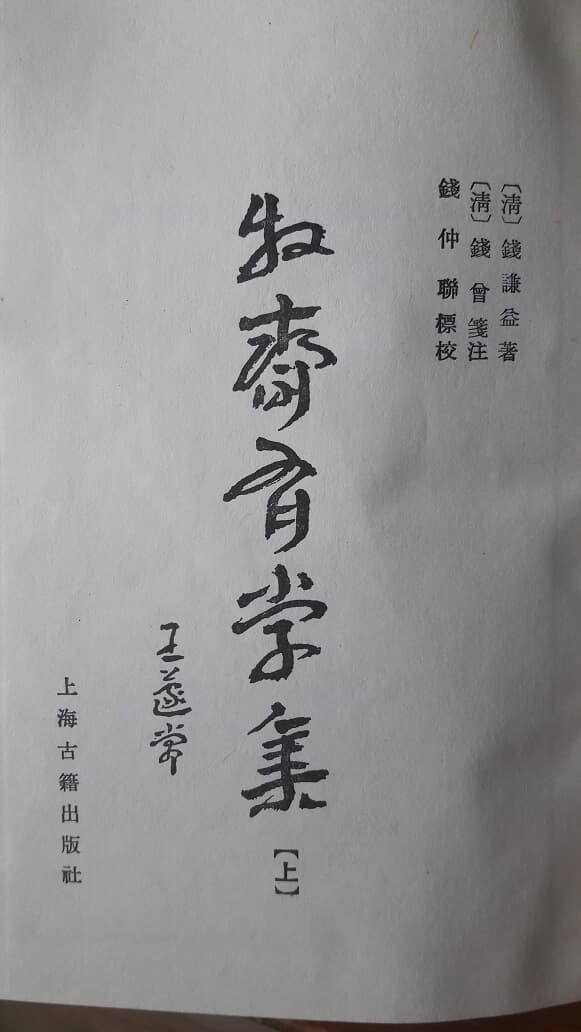 〔清〕錢謙益著
〔清〕錢曾箋注
錢仲聯標校
牧齋有學集
【上】
王蘧常
上海古籍出版社